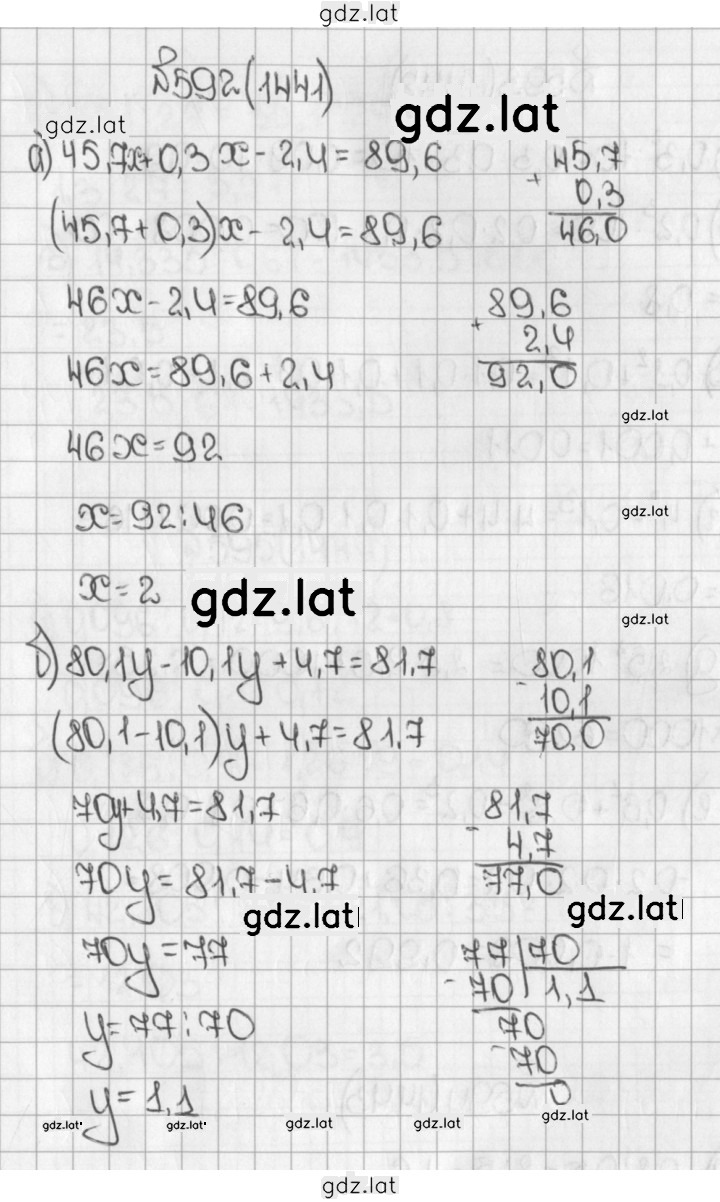 gdz.lat
№592(1441)
gdz.lat
gdz.lat
а) 45,7x+0,3x-2,4=89,6
(45,7+0,3)x-2,4=89,6
+ 45,7
0,3
46,0
46x-2,4=89,6
46x=89,6+2,4
+ 89,6
2,4
92,0
gdz.lat
46x=92
x=92:46
gdz.lat
x=2
gdz.lat
gdz.lat
б) 80,1y-10,1y+4,7=81,7
(80,1-10,1)y+4,7=81,7
- 80,1
10,1
70,0
70y+4,7=81,7
70y=81,7-4,7
- 81,7
4,7
77,0
gdz.lat
gdz.lat
70y=77
y=77:70
y=1,1
77|70
- 70 1,1
70
- 70
0
gdz.lat
gdz.lat
gdz.lat
gdz.lat
gdz.lat
gdz.lat